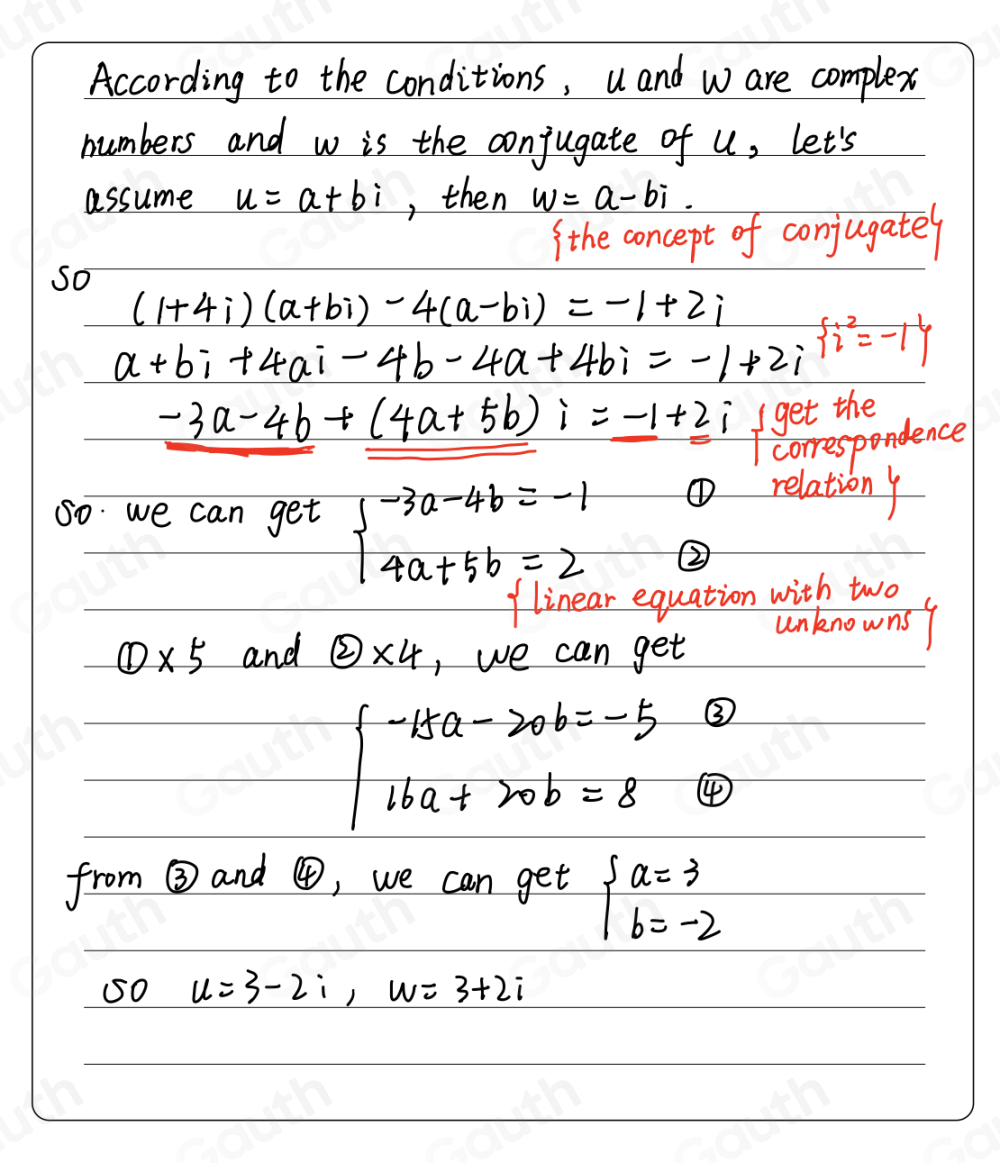 According to the conditions, u and w are complex
numbers and w is the conjugate of u, let's
assume u = a+bi, then w = a-bi.
{the concept of conjugate}
so
(1+4i)(a+bi) - 4(a-bi) = -1+2i
{i² = -1}
a+bi+4ai-4b-4a+4bi = -1+2i
-3a-4b+(4a+5b)i = -1+2i
{get the
correspondence
relation}
so. we can get { -3a-4b = -1 ①
4a+5b = 2 ②
{linear equation with two
unknowns}
①×5 and ②×4, we can get
{ -15a-20b = -5 ③
16a+20b = 8 ④
from ③ and ④, we can get { a = 3
b = -2
so u = 3-2i, w = 3+2i
Gauth